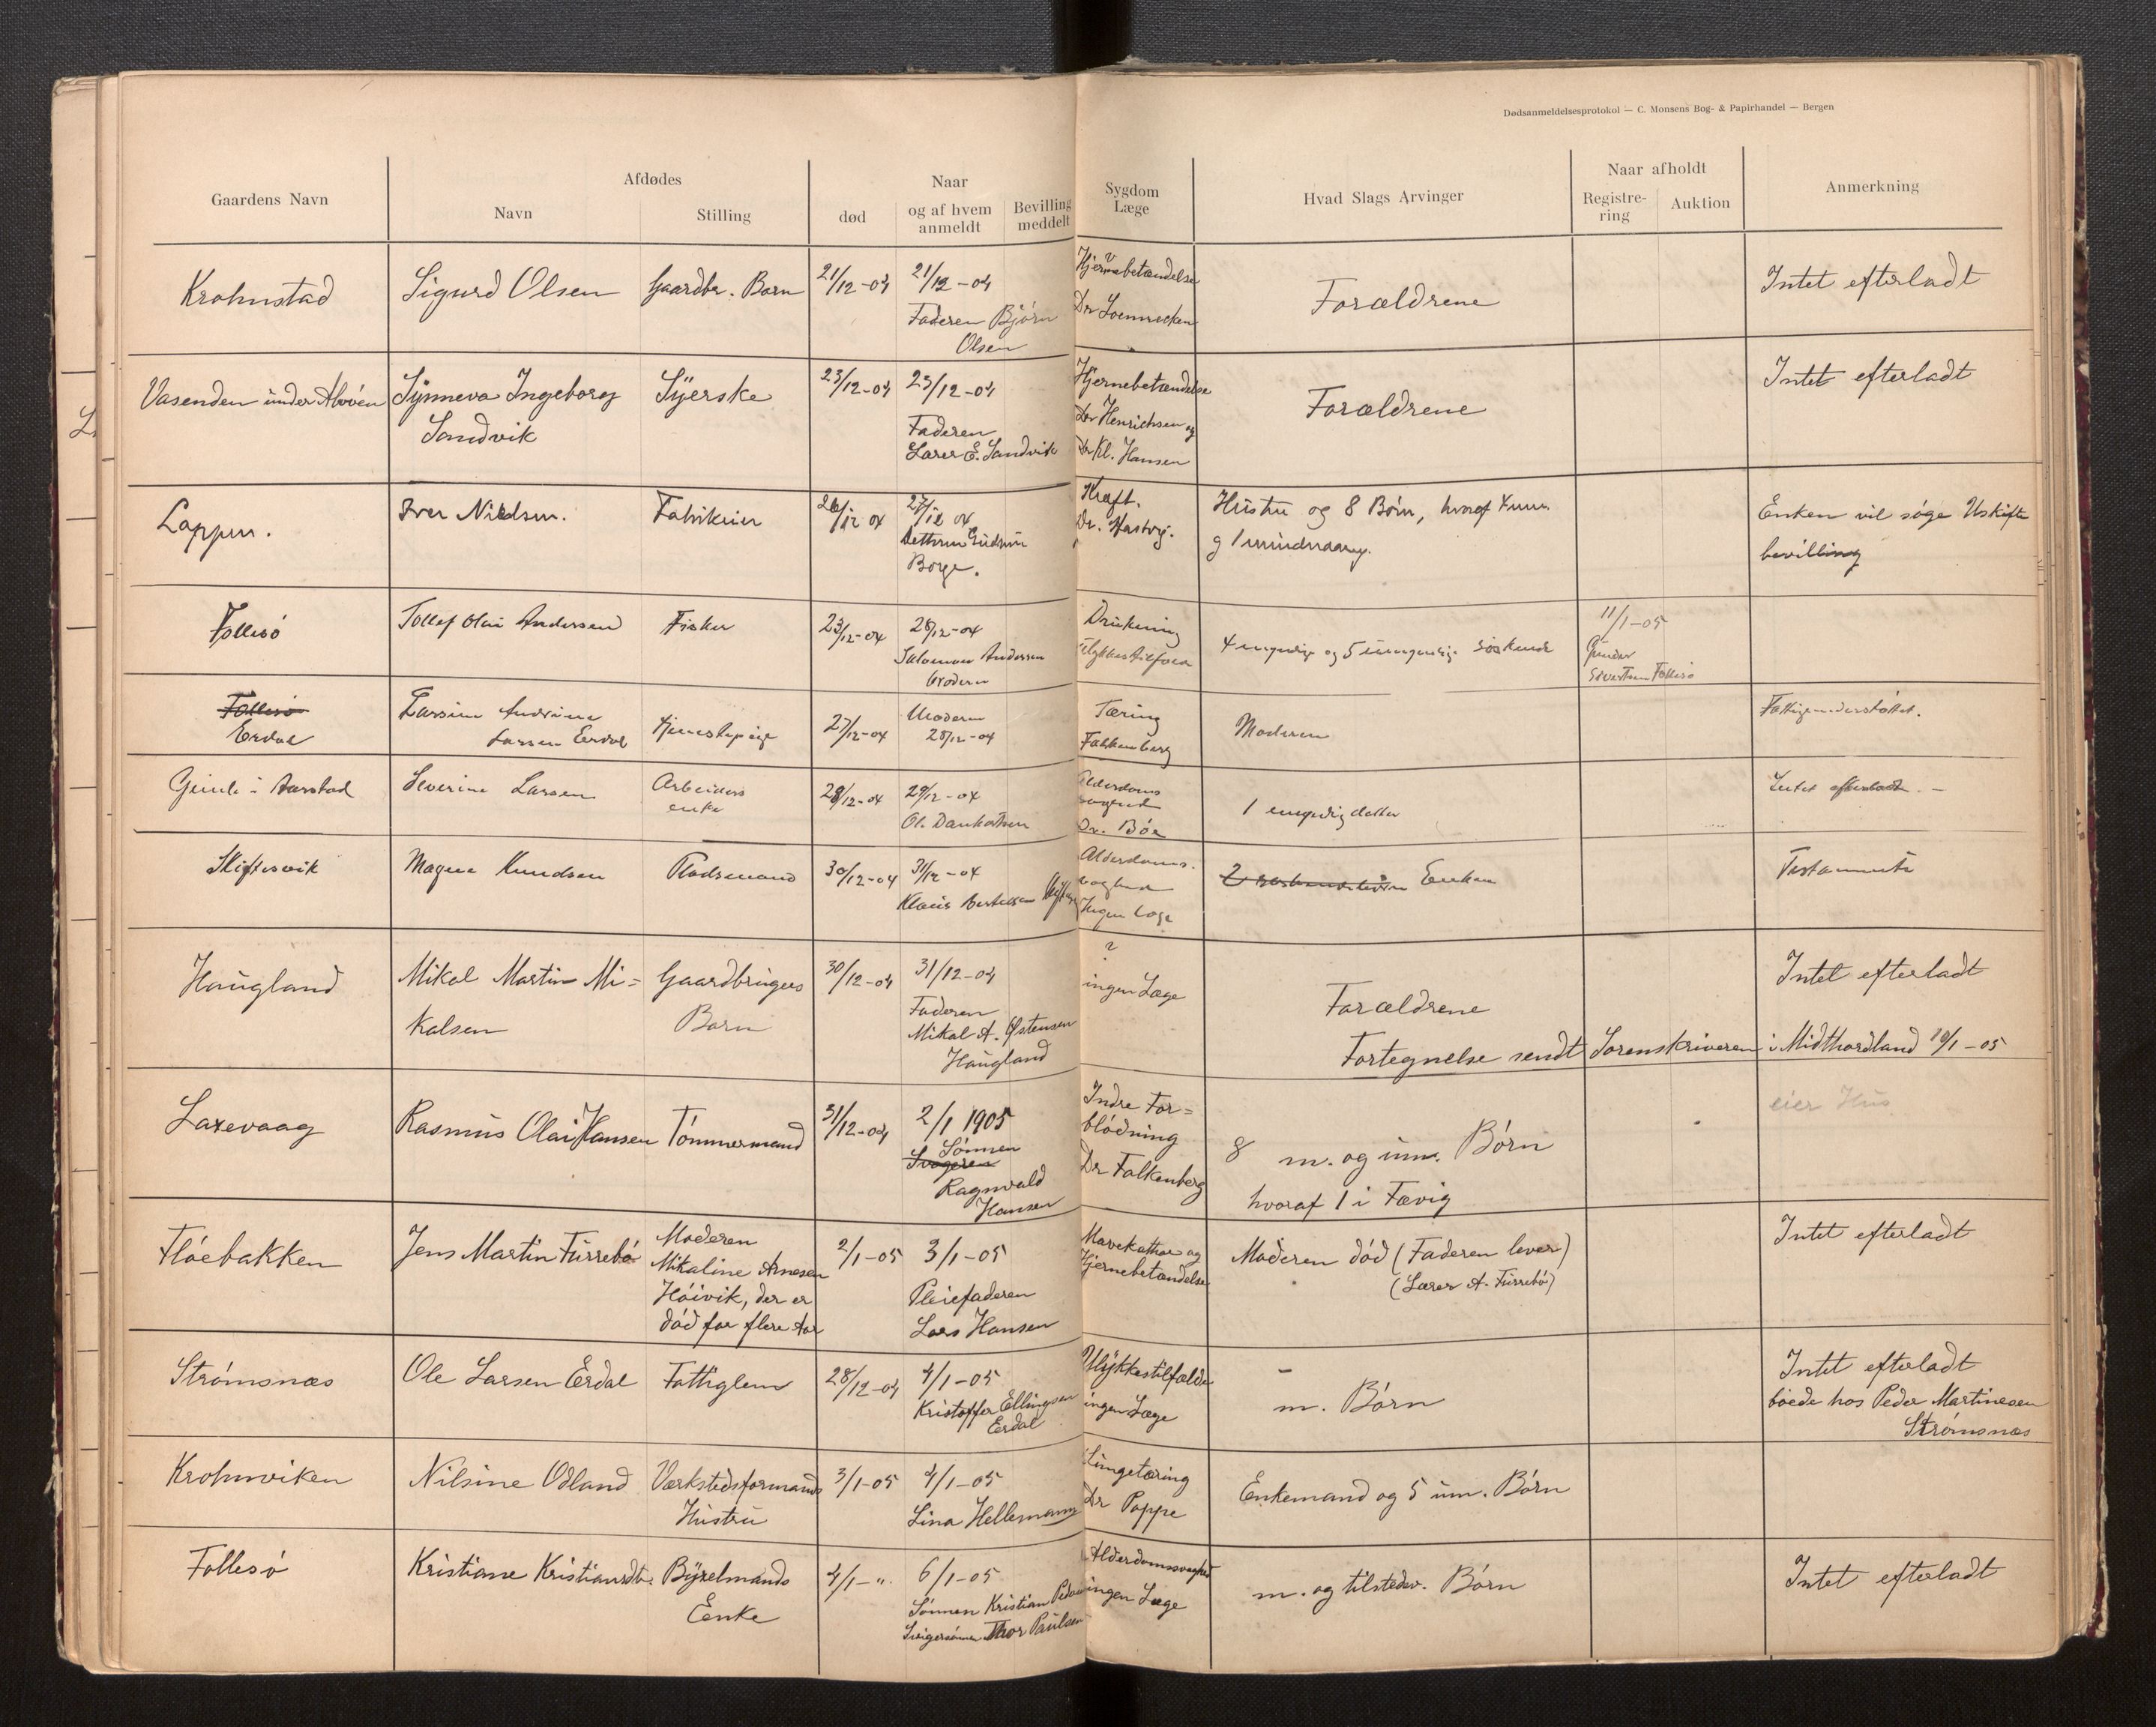 Dødsanmeldelsesprotokol — C. Monsens Bog- & Papirhandel — Bergen
Gaardens Navn
Afdødes
Navn
Stilling
død
Naar
og af hvem
anmeldt
Bevilling
meddelt
Sygdom
Læge
Hvad Slags Arvinger
Naar afholdt
Registre-
ring
Auktion
Anmerkning
Krohnstad
Sigurd Olsen
Gaardbr. Barn
21/12-04
21/12-04
Faderen Björn
Olsen
Hjernebetændelse
Dr
Forældrene
Intet efterladt
Vasenden under Alvöen
Synneva Ingeborg
Sandvik
Syerske
23/12-04
23/12-04
Faderen
Lærer E. Sandvik
Hjernebetændelse
Dr Henrichsen og
Dr Kl. Hansen
Forældrene
Intet efterladt
Iver Nilssen.
26/12 04
27/12 04
Borge.
Kræft.
Dr.
Hustru og 8 Börn, hvoraf
og 1 mindreaarig.
Enken vil søge Uskifte
bevilling
Follesö
Tollef Olai Andersen
Fisker
23/12-04
28/12-04
Salomon Andersen
broderen
Drukning
4 myndige og 5 umyndige söskende
11/1-05
Gunder
Sivertsen Follesö
Follesö
Erdal
Larsen Erdal
Tjenestepige
27/12-04
Moderen
28/12-04
Tæring
Falkenberg
Moderen
Fattigunderstöttet.
Gimle i Aarstad
Severine Larsen
Arbeiders
enke
28/12-04
29/12-04
Ol. Dankertsen
Alderdoms
svaghed
Dr. Böe
1 umyndig datter
Intet efterladt. -
Skiftesvik
Magne Knudsen
Plodsmand
30/12-04
31/12-04
Klaus Bertelsen
Alderdoms.
svaghed
Ingen læge
2 Enken
Testamente
Haugland
Mikal Martin Mi=
kalsen
Gaardbrugers
Barn
30/12-04
31/12-04
Faderen
Mikal A. Østensen
Haugland
?
ingen Læge
Forældrene
Intet efterladt
Fortegnelse sendt Sorenskriveren i Midthordland 10/1-05
Laxevaag
Rasmus Olai Hansen
Tömmermand
31/12-04
2/1 1905
Sönnen
Svogeren
Ragnvald
Hansen
Indre For=
blödning
Dr Falkenberg
8 m. og um. Börn
hvoraf 1 i Fævig
eier Hus
Flöebakken
Jens Martin Furrebö
Moderen
Mikaline Arnesen
Höivik, der er
död for flere Aar
2/1-05
3/1-05
Pleiefaderen
Lars Hansen
Mavekathar og
Hjernebetændelse
Moderen död (Faderen lever)
(Lærer A. Furrebö)
Intet efterladt
Strömsnæs
Ole Larsen Erdal
Fattiglem
28/12-04
4/1-05
Kristoffer Ellingsen
Erdal
Ulykkestilfælde
ingen Læge
-
m. Börn
Intet efterladt
boede hos Peder Martinesen
Strömsnæs
Krohnviken
Nilsine Odland
Værkstedsformands
Hustru
3/1-05
4/1-05
Lina Hellemann
Lungetæring
Dr Poppe
Enkemand og 5 um. Börn
Follesö
Kristiane Kristiansdtr.
Byxelmands
Eenke
4/1-".
6/1-05
Sönnen Kristian
Svigersönnen Thor Paulsen
Alderdomssvaghed
ingen Læge
m. og tilstedev. Börn
Intet efterladt